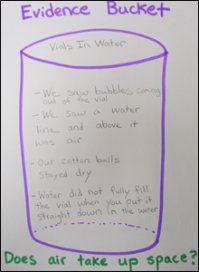 Evidence Bucket
Vials In Water
- We saw bubbles coming
out of the vial
- We saw a water
line and above it
was air
- Our cotton balls
stayed dry
- Water did not fully fill
the vial when you put it
straight down in the water
Does air take up space?